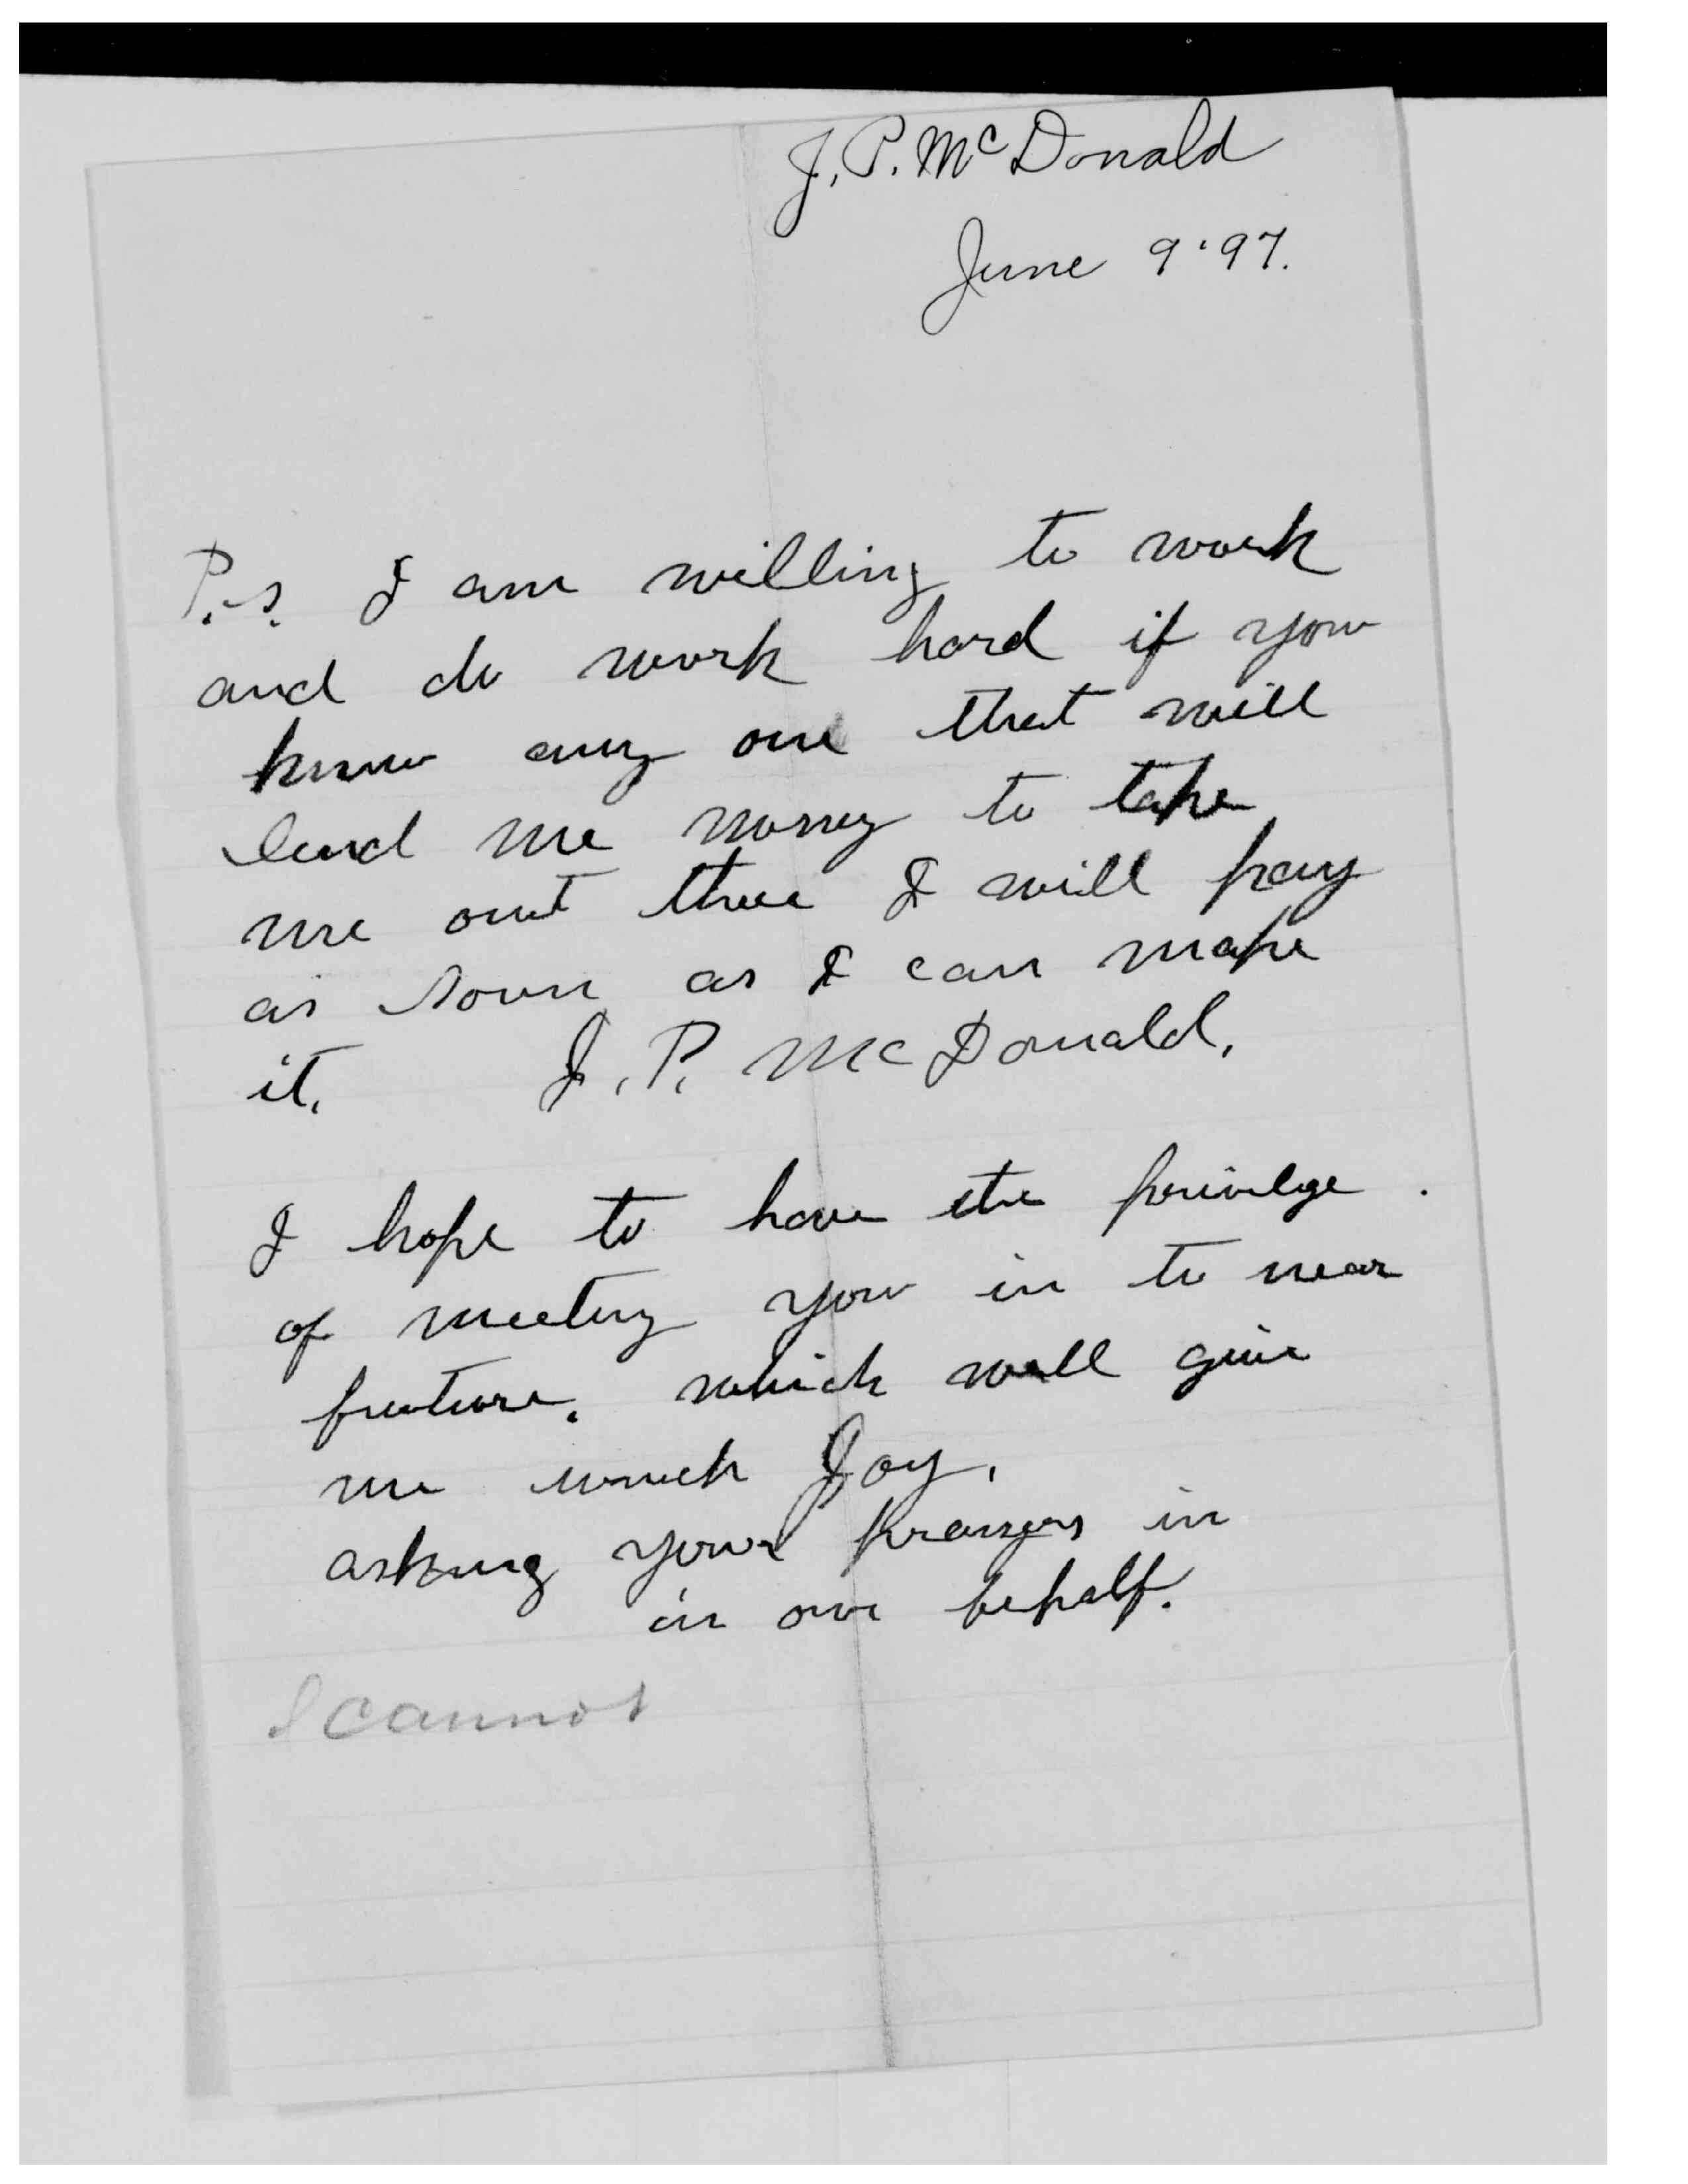 J. P. McDonald
June 9 '97.
P.S. I am willing to work
and do work hard if you
know any one that will
lend me money to take
me out there I will pay
as soon as I can make
it. J. P. McDonald.
I hope to have the privilge
of meeting you in to near
fruture. which will give
me much Joy.
asking your prayers in
in our behalf.
I cannot